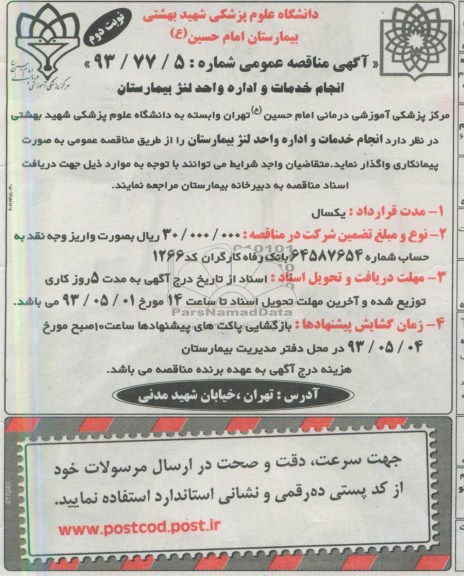 دانشگاه علوم پزشکی شهید بهشتی
بیمارستان امام حسین (ع)
نوبت دوم
« آگهی مناقصه عمومی شماره : ۵ / ۷۷ / ۹۳ »
انجام خدمات و اداره واحد لنژ بیمارستان
مرکز پزشکی آموزشی درمانی امام حسین (ع) تهران وابسته به دانشگاه علوم پزشکی شهید بهشتی
در نظر دارد انجام خدمات و اداره واحد لنژ بیمارستان را از طریق مناقصه عمومی به صورت
پیمانکاری واگذار نماید.متقاضیان واجد شرایط می توانند با توجه به موارد ذیل جهت دریافت
اسناد مناقصه به دبیرخانه بیمارستان مراجعه نمایند.
۱- مدت قرارداد : یکسال
۲- نوع و مبلغ تضمین شرکت در مناقصه : ۳۰/۰۰۰/۰۰۰ ریال بصورت واریز وجه نقد به
حساب شماره ۶۴۵۸۷۶۵۴ بانک رفاه کارگران کد ۱۲۶۶
۳- مهلت دریافت و تحویل اسناد : اسناد از تاریخ درج آگهی به مدت ۵روز کاری
توزیع شده و آخرین مهلت تحویل اسناد تا ساعت ۱۴ مورخ ۹۳/۰۵/۰۱ می باشد.
ParsNamadData
۴- زمان گشایش پیشنهادها : بازگشایی پاکت های پیشنهادها ساعت۱۰صبح مورخ
۹۳/۰۵/۰۴ در محل دفتر مدیریت بیمارستان
هزینه درج آگهی به عهده برنده مناقصه می باشد.
آدرس : تهران ،خیابان شهید مدنی
جهت سرعت، دقت و صحت در ارسال مرسولات خود
از کد پستی ده‌رقمی و نشانی استاندارد استفاده نمایید.
www.postcod.post.ir